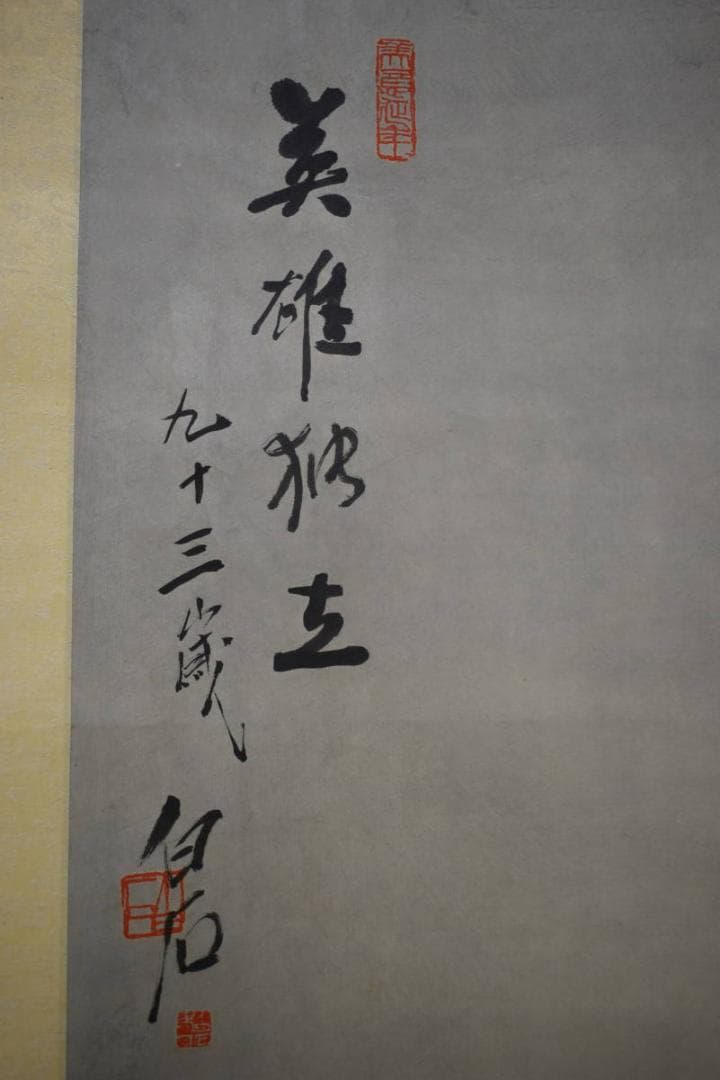 英雄独立
九十三歲白石